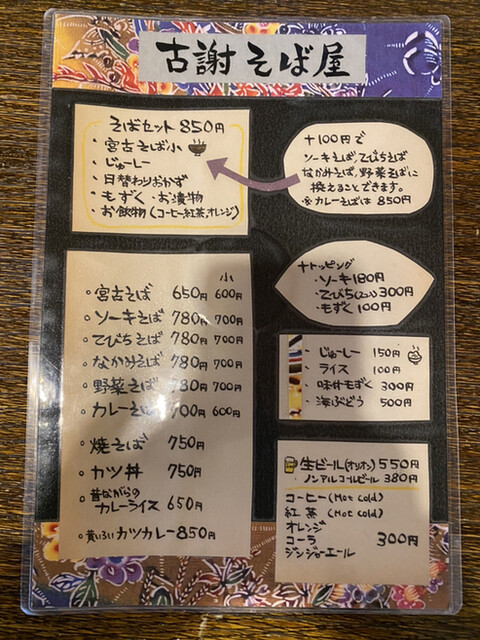 古謝そば屋
そばセット 850円
・宮古そば小
・じゅーしー
・日替わりおかず
・もずく・お漬物
・お飲物(コーヒー紅茶,オレンジ)
+100円で
ソーキそば,てびちそば
なかみそば,野菜そばに
換えることできます。
※カレーそばは 850円
小
・宮古そば 650円 600円
・ソーキそば 780円 700円
・てびちそば 780円 700円
・なかみそば 780円 700円
・野菜そば 780円 700円
・カレーそば 700円 600円
・焼そば 750円
・カツ丼 750円
・昔ながらの
カレーライス 650円
・黄いろいカツカレー 850円
+トッピング
・ソーキ 180円
・てびち(2コ) 300円
・もずく 100円
・じゅーしー 150円
・ライス 100円
・味付もずく 300円
・海ぶどう 500円
生ビール(オリオン) 550円
ノンアルコールビール 380円
コーヒー (Hot cold)
紅茶 (Hot cold)
オレンジ
コーラ 300円
ジンジャーエール